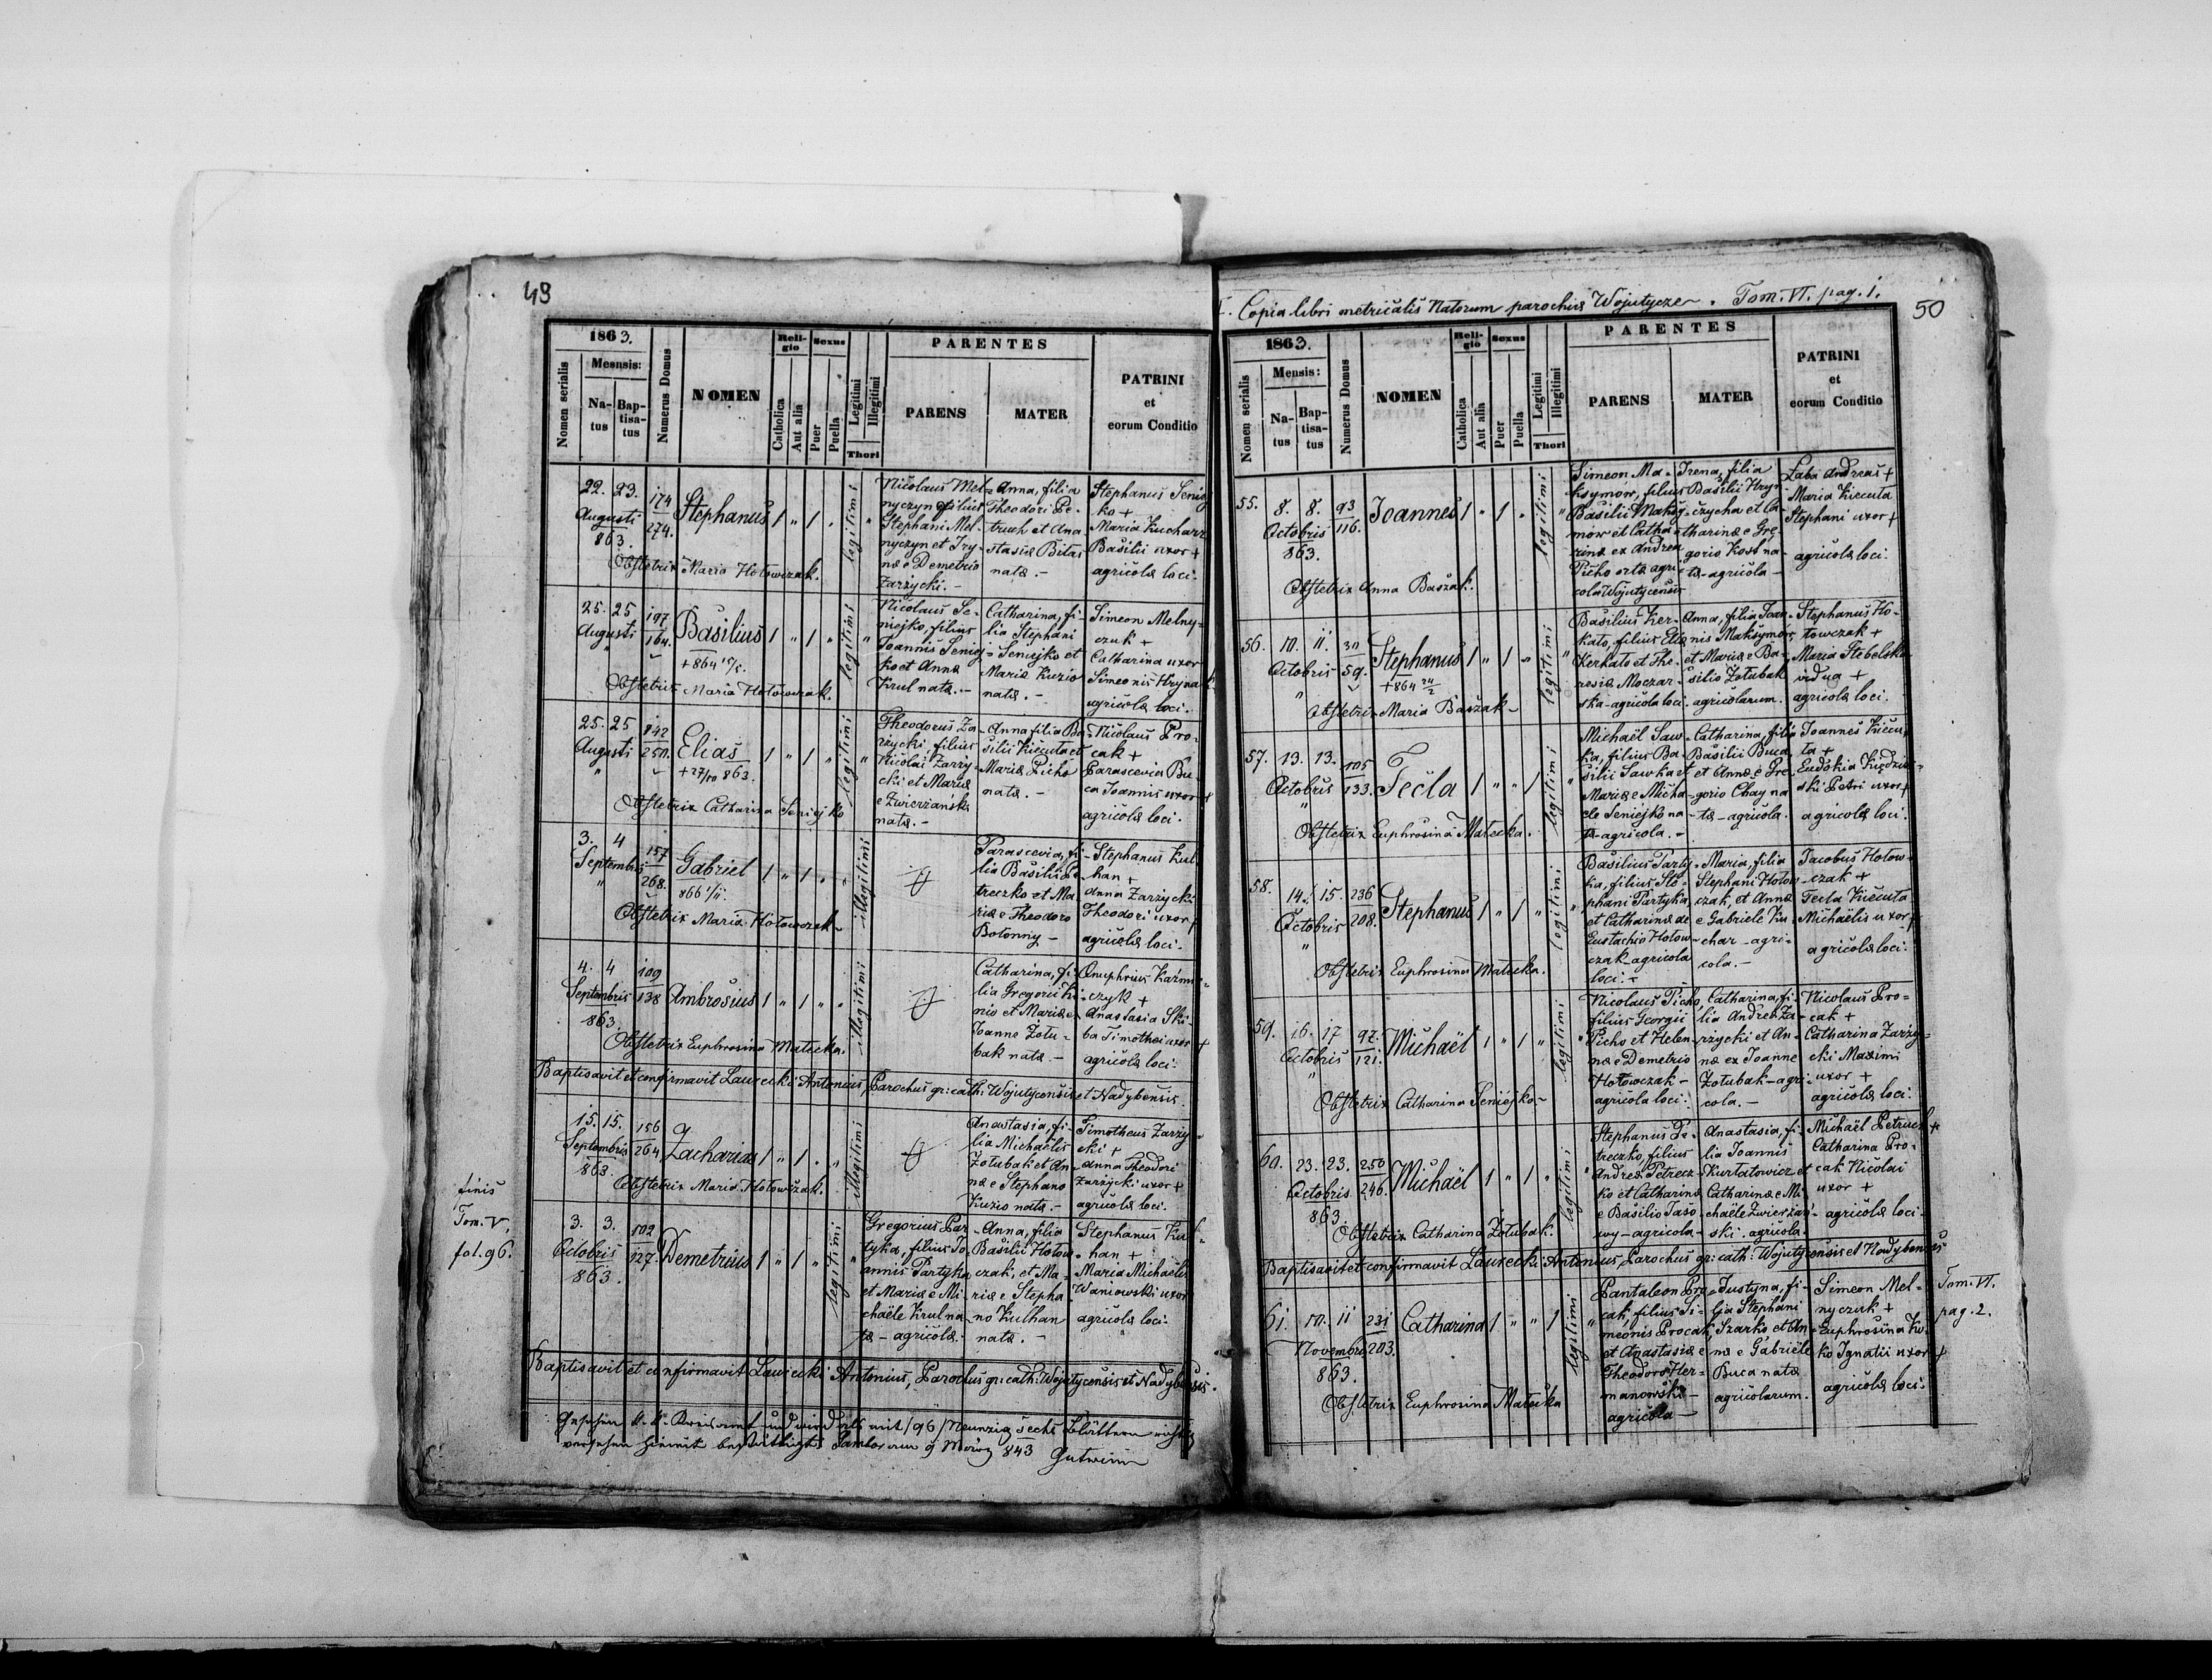 49
1863.
Nomen serialis
Mesnsis:
Na-
tus
Bap-
tisa-
tus
Numerus Domus
NOMEN
Reli-
gio
Catholica
Aut alia
Sexus
Puer
Puella
Legitimi
Illegitimi
Thori
PARENTES
PARENS
MATER
PATRINI
et
eorum Conditio
22. 23.
Augusti
863.
174
274.
Stephanus
1 " 1 "
legitimi
Nicolaus Mel-
nyczyn filius
Stephani Mel-
nyczyn et Iry-
nae Demetrio
Zarzycki.-
Anna, filia
Theodori Pe-
truch et Ana-
stasiae Bilas
nata.-
Stephanus Seniej
ko +
Maria Kucharz
Basilii uxor +
agricolae loci.
Obstetrix Maria Hołowczak.
25. 25
Augusti
"
197
164.
Basilius
+ 864
1 " 1 "
legitimi
Nicolaus Se-
niejko, filius
Joannis Seniej-
ko et Annae
Krul nata.-
Catharina, fi-
lia Stephani
Seniejko et
Mariae Kuzio
nata.-
Simeon Melny-
czuk +
Catharina uxor
Simeonis Hryna
agricolae loci.
Obstetrix Maria Hołowczak.
25. 25
Augusti
"
142
250.
Elias
+ 27/10 863.
1 " 1 "
legitimi
Theodorus Za-
rzycki, filius
Nicolai Zarzy-
cki et Mariae
e Zwierzańska
nata.-
Anna filia Ba-
silii Kieczuta et
Mariae Picho
nata.-
Nicolaus Pro-
cak +
Parascevia Bu-
ca Joannis uxor +
agricolae loci.
Obstetrix Catharina Seniejko
3. 4
Septembris
"
157
268.
Gabriel
866 1/11.
1 " 1 " "
illegitimi
Parascevia, fi-
lia Basilii Pe-
treczko et Ma-
riae e Theodoro
Bołonny-
Stephanus Kul-
han +
Anna Zarzycki
Theodori uxor +
agricolae loci.
Obstetrix Maria Hołowczak-
4. 4
Septembris
863.
109
138
Ambrosius
1 " 1 " "
illegitimi
Catharina, fi-
lia Gregorii Ki-
nio et Mariae e
Joanne Żołu-
bak nata.-
Onuphrius Kazmir-
czyk +
Anastasia Ski-
ba Timothei uxor +
agricolae loci.
Obstetrix Euphrosina Małecka.
Baptisavit et confirmavit Laurecki Antonius, Parochus gr: cath: Wojutycensis et Nadybensis.
15. 15.
Septembris
863.
156
264.
Zacharias
1 " 1 " "
illegitimi
Anastasia, fi-
lia Michaëlis
Żołubak et An-
nae e Stephano
Kuzio nata.-
Timotheus Zarzy-
cki +
Anna Theodori
Zarzycki uxor +
agricolae loci.
Obstetrix Maria Hołowczak.
finis
Tom. V,
fol. 96.
3. 3.
Octobris
863.
102
127.
Demetrius
1 " 1 "
legitimi
Gregorius Par-
tyka, filius Jo-
annis Partyka
et Mariae e Mi-
chaële Krul na-
ta - agricola.
Anna, filia
Basilii Hołow-
czak, et Ma-
riae e Stepha-
no Kulhan
nata.-
Stephanus Kul-
han +
Maria Michaëlis
Waniowski uxor
agricolae loci.
Baptisavit et confirmavit Laurecki Antonius, Parochus gr: cath: Wojutycensis et Nadybensis.
Gesehen k.k. Kreisamt und wird als mit /96/ Neunzig sechs Blättern richtig
versehen hiemit bestättigt Sambor am 9 März 843
50
Copia libri metricalis Natorum parochiae Wojutycze. Tom. VI. pag. 1.
1863.
Nomen serialis
Mensis:
Na-
tus
Bap-
tisa-
tus
Numerus Domus
NOMEN
Reli-
gio
Catholica
Aut alia
Sexus
Puer
Puella
Legitimi
Illegitimi
Thori
PARENTES
PARENS
MATER
PATRINI
et
eorum Conditio
55.
8. 8.
Octobris
863.
93
116.
Joannes
1 " 1 "
legitimi
Simeon Ma-
ksymów, filius
Basilii Maksy-
mow et Catha-
rinae ex Andrea
Picho orta agri-
cola Wojutycensis
Irena, filia
Basilii Hryn-
czycha et Ca-
tharinae e Gre-
gorio Kost na-
ta-agricola-
Laba Andreas +
Maria Kieczuta
Stephani uxor +
agricolae loci.
Obstetrix Anna Baszak.
56.
10. 11.
Octobris
"
30
59.
Stephanus
+ 864 24/2
1 " 1 "
legitimi
Basilius Ker-
kało, filius Eliae
Kerkało et The-
resiae Moczar-
ska-agricola loci.
Anna, filia Joan-
nis Maksymów,
et Mariae e Ba-
silio Żołubak
agricolarum.
Stephanus Ho-
łowczak +
Maria Stebelska
vidua +
agricolae loci.
Obstetrix Maria Baszak-
57.
13. 13.
Octobris
"
105
133.
Tecla
1 " " 1
legitimi
Michaël Saw-
ka, filius Ba-
silii Sawka et
Mariae e Micha-
ele Seniejko na-
ta-agricola.-
Catharina, filia
Basilii Buca
et Annae e Gre-
gorio Chay na-
ta-agricola.
Joannes Kieczu-
ta +
Eudokia Kędzier-
ski Petri uxor +
agricolae loci.
Obstetrix Euphrosina Małecka.
58.
14. 15.
Octobris
"
236
208.
Stephanus
1 " 1 "
legitimi
Basilius Party-
ka, filius Ste-
phani Partyka
et Catharinae de
Eustachio Hołow-
czak-agricola
loci.-
Maria, filia
Stephani Hołow-
czak, et Annae
e Gabriele Ku-
char-agri-
cola.-
Jacobus Hołow-
czak +
Tecla Kieczuta
Michaëlis uxor +
agricolae loci.
Obstetrix Euphrosina Małecka.
59.
16. 17
Octobris
"
97.
121.
Michaël
1 " 1 "
legitimi
Nicolaus Picho,
filius Georgii
Picho et Hele-
nae e Demetrio
Hołowczak-
agricola loci.
Catharina, fi-
lia Andreae Za-
rzycki et An-
nae ex Joanne
Żołubak-agri-
cola.-
Nicolaus Pro-
cak +
Catharina Zarzy-
cki Maximi
uxor +
agricolae loci.
Obstetrix Catharina Seniejko.-
60.
23. 23.
Octobris
863.
250
246.
Michaël
1 " 1 "
legitimi
Stephanus Pe-
treczko, filius
Andreae Petrecz-
ko et Catharinae
e Basilio Jaso-
wy-agricola-
Anastasia, fi-
lia Joannis
Kurłatowicz et
Catharinae e Mi-
chaële Zwierzań-
ski. agricola
Michaël Petruch +
Catharina Pro-
cak Nicolai
uxor +
agricolae loci.
Obstetrix Catharina Żołubak.
Baptisavit et confirmavit Laurecki Antonius, Parochus gr: cath: Wojutycensis et Nadybensis
61.
10. 11
Novembris
863.
231
203.
Catharina
1 " " 1
legitimi
Pantaleon Pro-
cak, filius Si-
meonis Procak,
et Anastasiae e
Theodoro Her-
manowski-
agricola-
Justyna, fi-
lia Stephani
Szarko et An-
nae e Gabriele
Buca nata
agricolarum.
Simeon Mel-
nyczuk +
Euphrosina Ko-
ko Ignatii uxor +
agricolae loci.
Tom. VI.
pag. 2.
Obstetrix Euphrosina Małecka